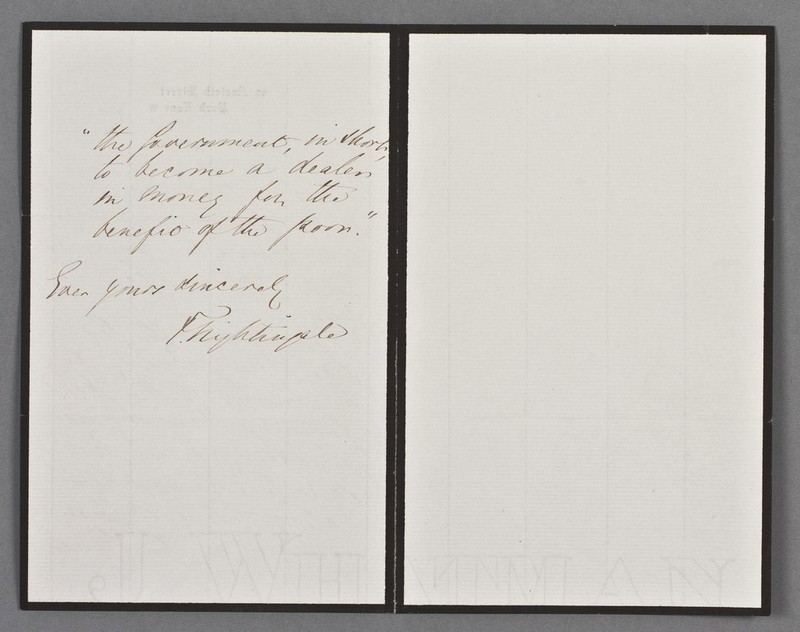 "the Government, in short,
to become a dealer
in money for the
benefit of the poor."
Ever yours sincerely
F. Nightingale